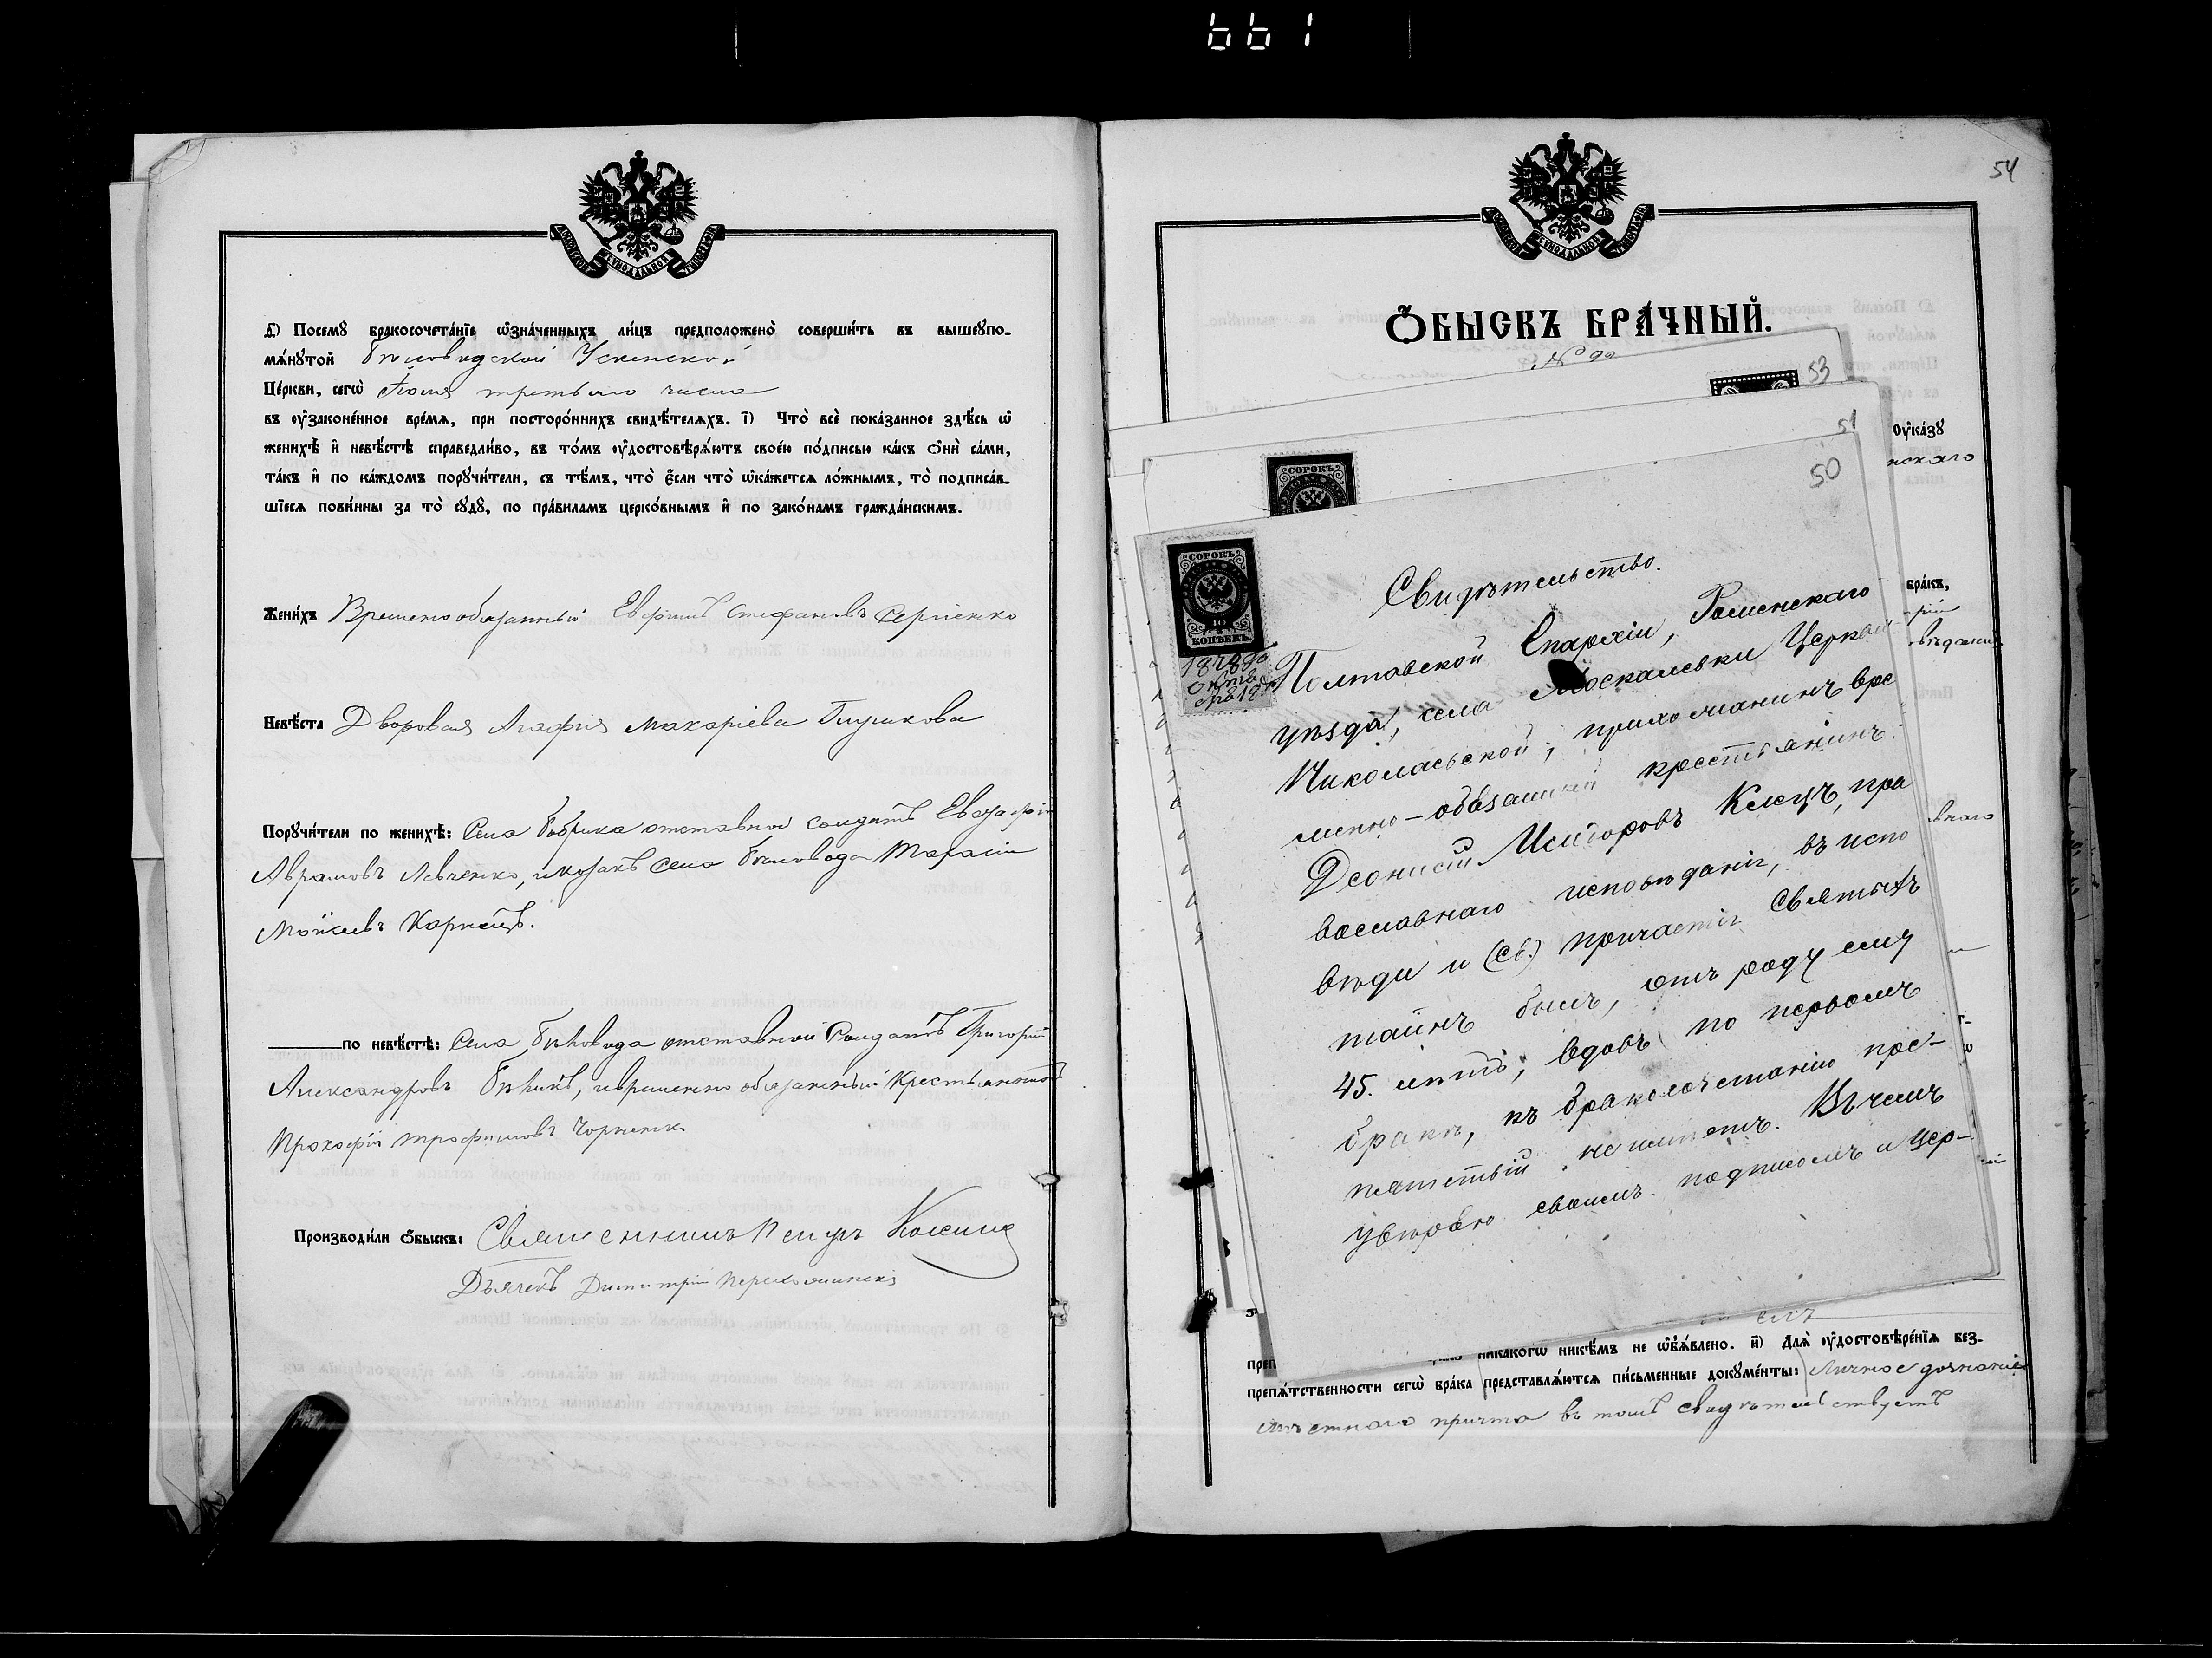 661
д҃) Посемꙋ бракосочета́нїе ѡ҆зна́ченныхъ ли́цъ предположено̀ соверши́ть въ вышеꙋпо-
мѧ́нꙋтой Бѣловодской Успенской
Це́ркви, сегѡ̀ Іюля третьяго числа
въ ᲂу҆законе́нное вре́мѧ, при посторо́ннихъ свидѣ́телѧхъ. і҃) Что̀ всѐ пока́занное здѣ́сь ѡ҆
женихѣ̀ и҆ невѣ́стѣ справедли́во, въ то́мъ ᲂу҆достовѣрѧ́ютъ свое́ю по́дписью ка́къ ѻ҆нѝ са́ми,
та́къ и҆ по ка́ждомъ порꙋчи́тели, съ тѣ́мъ, что̀ є҆́сли что̀ ѡ҆ка́жетсѧ ло́жнымъ, то̀ подписа́в-
шїесѧ пови́нны за то̀ сꙋдꙋ̀, по пра́виламъ церко́внымъ и҆ по зако́намъ гражда́нскимъ.
Жени́хъ Временообязанный Стефановъ Сергіенко
Невѣ́ста Дворовая Агафія Макаріева Глушкова
Порꙋчи́тели по женихѣ̀: Села Бобрика отставной солдатъ
Аврамовъ Левченко, и козакъ села Бѣловода Тарасій
Моисеевъ Карпецъ.
по невѣ́стѣ: Села Бѣловода отставной Солдатъ Григорій
Александровъ Бѣликъ, и временно обязанный
Прокофій Трофимовъ
Производи́ли ѻ҆́быскъ: Священникъ Петръ
Дьячекъ Димитрій
54
Ѻ҆́быскъ бра́чный.
№
53
ᲂу҆ка́зꙋ
51
50
нскаго
СОРОКЪ
СОРОКЪ
КОПѢЕКЪ.
Свидѣтельство.
Полтавской Епархіи, Роменскаго
уѣзда, села Москалевки Церкви
Николаевской, прихожанинъ вре
менно-обязанный крестьянинъ
Деонисій Исидоровъ Клецъ, пра
вославнаго исповѣданія, въ испо
вѣди и (св.) причастія Святыхъ
тайнъ былъ, отъ роду ему
45. лѣтъ, вдовъ по первомъ
бракѣ, къ бракосочетанію пре-
пятствій не имѣетъ. Въ чемъ
увѣряю своимъ подписомъ и цер-
бра́къ,
никаког̀ѡ никѣ́мъ не ѡ҆б̾ѧ́влено. и҃) Длѧ̀ ᲂу҆достовѣре́нїѧ без-
препѧ́тственности сегѡ̀ бра́ка представлѧ́ютсѧ пи́сьменные докꙋме́нты: Личное дознаніе
мѣстнаго причта въ томъ свидѣтельствуетъ